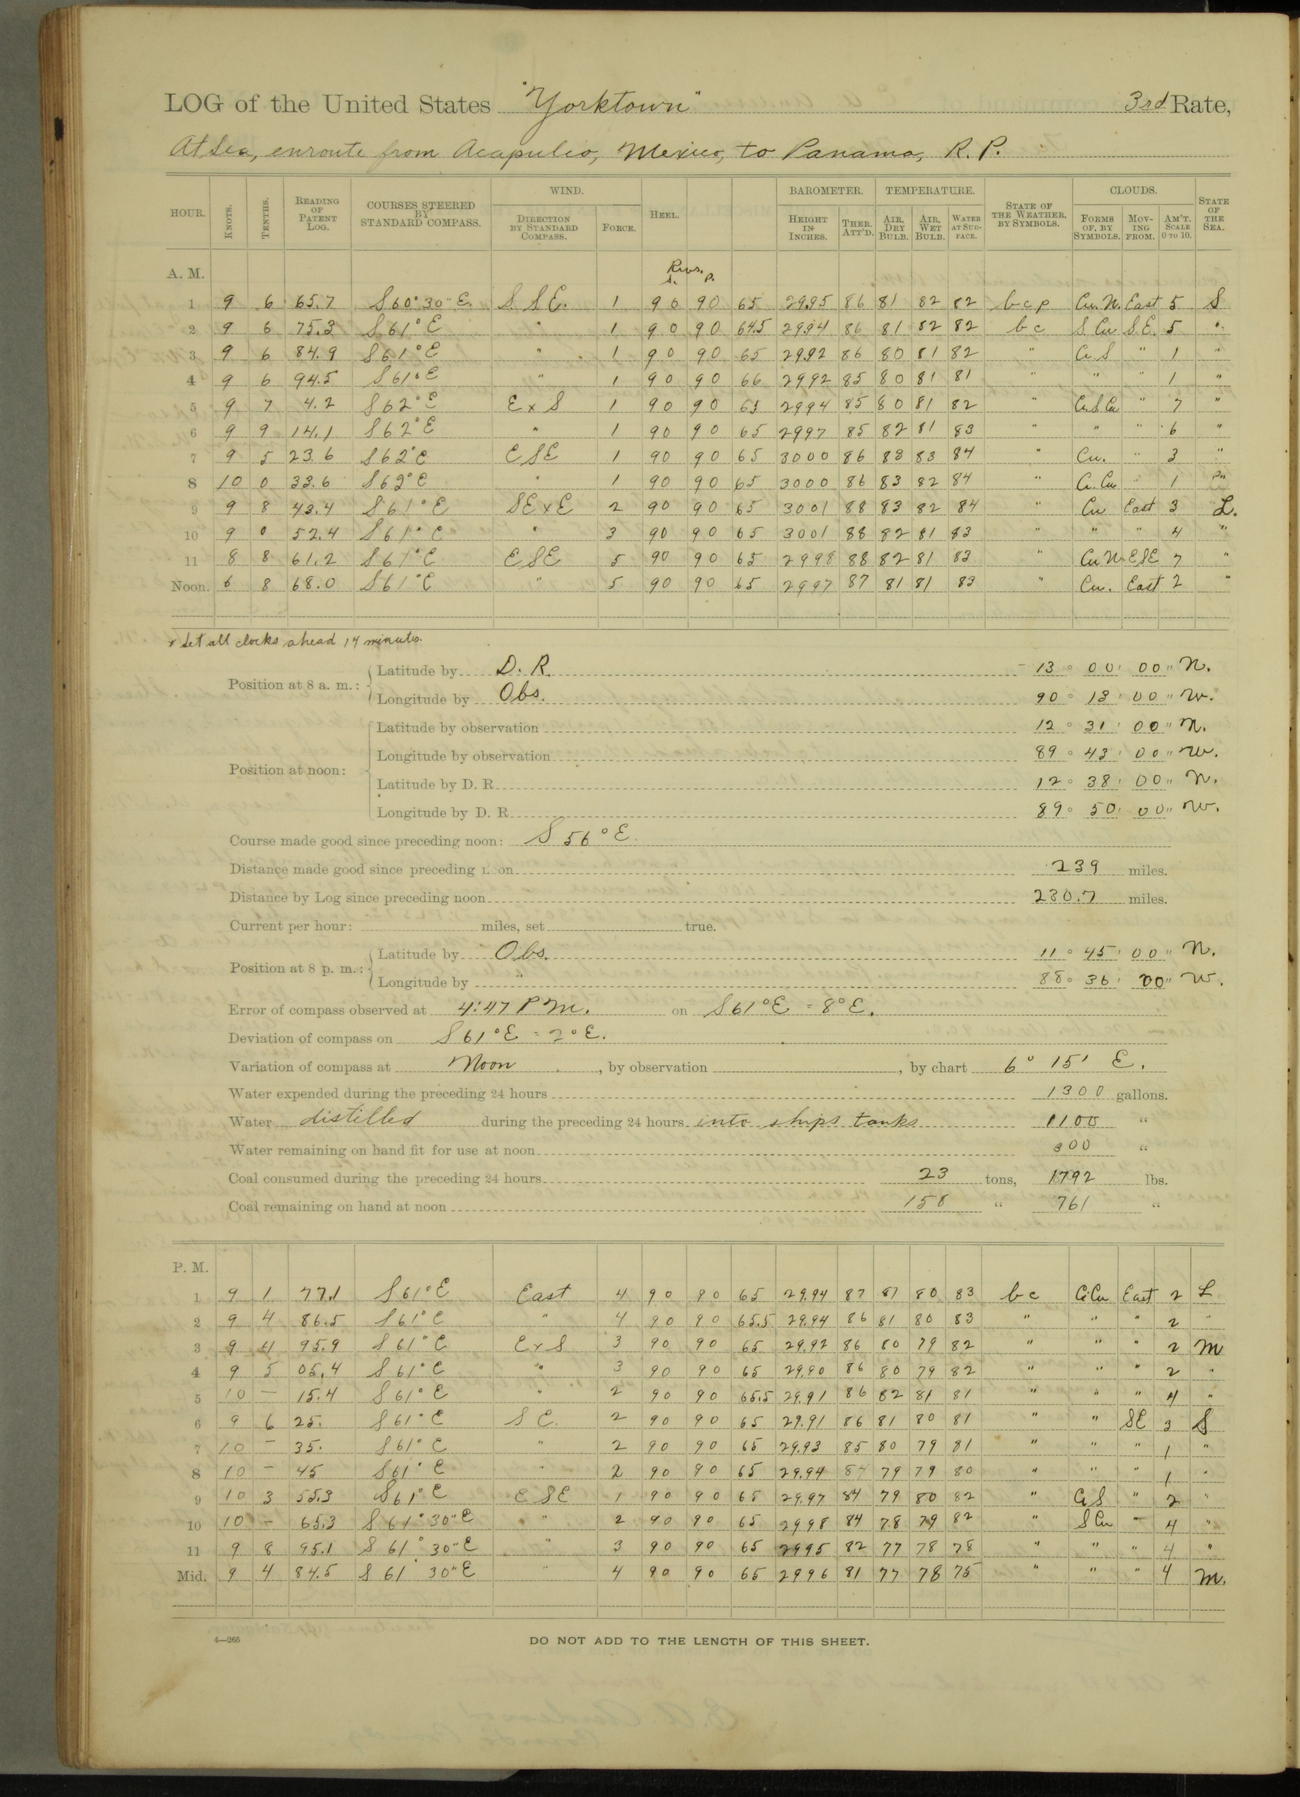 LOG of the United States "Yorktown" 3rd Rate,
At Sea, enroute from Acapulco, Mexico, to Panama, R. P.
HOUR. KNOTS. TENTHS. READING OF PATENT LOG. COURSES STEERED BY STANDARD COMPASS. WIND. DIRECTION BY STANDARD COMPASS. FORCE. HEEL. BAROMETER. HEIGHT IN INCHES. THER. ATT'D. TEMPERATURE. AIR, DRY BULB. AIR, WET BULB. WATER AT SURFACE. STATE OF THE WEATHER, BY SYMBOLS. CLOUDS. FORMS OF, BY SYMBOLS. MOVING FROM. AM'T. SCALE 0 TO 10. STATE OF THE SEA.
A. M. Revs. S. P.
1 9 6 65.7 S 60° 30" E. S S E. 1 90 90 65 2995 86 81 82 82 b c p Cu. N. East 5 S
2 9 6 75.3 S 61° E " 1 90 90 64.5 2994 86 81 82 82 b c S Cu S E. 5 "
3 9 6 84.9 S 61° E " 1 90 90 65 2992 86 80 81 82 " Ci S " 1 "
4 9 6 94.5 S 61° E " 1 90 90 66 2992 85 80 81 81 " " " 1 "
5 9 7 4.2 S 62° E E x S 1 90 90 65 2994 85 80 81 82 " Ci S Cu " 7 "
6 9 9 14.1 S 62° E " 1 90 90 65 2997 85 82 81 83 " " " 6 "
7 9 5 23.6 S 62° E E S E 1 90 90 65 3000 86 83 83 84 " Cu. " 3 "
8 10 0 33.6 S 62° E " 1 90 90 65 3000 86 83 82 84 " Ci. Cu " 1 "
9 9 8 43.4 S 61° E SE x E 2 90 90 65 3001 88 83 82 84 " Cu East 3 L.
10 9 0 52.4 S 61° E " 3 90 90 65 3001 88 82 81 83 " " " 4 "
11 8 8 61.2 S 61° E E S E 5 90 90 65 2998 88 82 81 83 " Cu N ESE 7 "
Noon. 6 8 68.0 S 61° E " 5 90 90 65 2997 87 81 81 83 " Cu. East 2 "
x Set all clocks ahead 14 minutes.
Position at 8 a. m.: Latitude by D. R. 13 ° 00 ' 00 " N.
Longitude by Obs. 90 ° 13 ' 00 " W.
Position at noon: Latitude by observation 12 ° 31 ' 00 " N.
Longitude by observation 89 ° 43 ' 00 " W.
Latitude by D. R. 12 ° 38 ' 00 " N.
Longitude by D. R. 89 ° 50 ' 00 " W.
Course made good since preceding noon: S 56° E.
Distance made good since preceding noon 239 miles.
Distance by Log since preceding noon 230.7 miles.
Current per hour: miles, set true.
Position at 8 p. m.: Latitude by Obs. 11 ° 45 ' 00 " N.
Longitude by " 88 ° 36 ' 00 " W.
Error of compass observed at 4:47 P M. on S 61° E = 8° E.
Deviation of compass on S 61° E = 2° E.
Variation of compass at Noon, by observation , by chart 6° 15' E.
Water expended during the preceding 24 hours 1300 gallons.
Water distilled during the preceding 24 hours into ships tanks 1100 "
Water remaining on hand fit for use at noon 300 "
Coal consumed during the preceding 24 hours 23 tons, 1792 lbs.
Coal remaining on hand at noon 158 " 761 "
P. M.
1 9 1 77.1 S 61° E East 4 90 90 65 29.94 87 81 80 83 b c Ci Cu East 2 L
2 9 4 86.5 S 61° E " 4 90 90 65.5 29.94 86 81 80 83 " " " 2 "
3 9 4 95.9 S 61° E E x S 3 90 90 65 29.92 86 80 79 82 " " " 2 M
4 9 5 05.4 S 61° E " 3 90 90 65 29.90 86 80 79 82 " " " 2 "
5 10 — 15.4 S 61° E " 2 90 90 65.5 29.91 86 82 81 81 " " " 4 "
6 9 6 25. S 61° E S E. 2 90 90 65 29.91 86 81 80 81 " " SE 3 S
7 10 — 35. S 61° E " 2 90 90 65 29.93 85 80 79 81 " " " 1 "
8 10 — 45 S 61° E " 2 90 90 65 29.94 84 79 79 80 " " " 1 "
9 10 3 55.3 S 61° E E S E 1 90 90 65 29.97 84 79 80 82 " Ci S " 2 "
10 10 — 65.3 S 61° 30" E " 2 90 90 65 2998 84 78 79 82 " S Cu " 4 "
11 9 8 95.1 S 61° 30" E " 3 90 90 65 2995 82 77 78 78 " " " 4 "
Mid. 9 4 84.5 S 61° 30" E 4 90 90 65 2996 81 77 78 75 " " " 4 M.
4—266
DO NOT ADD TO THE LENGTH OF THIS SHEET.